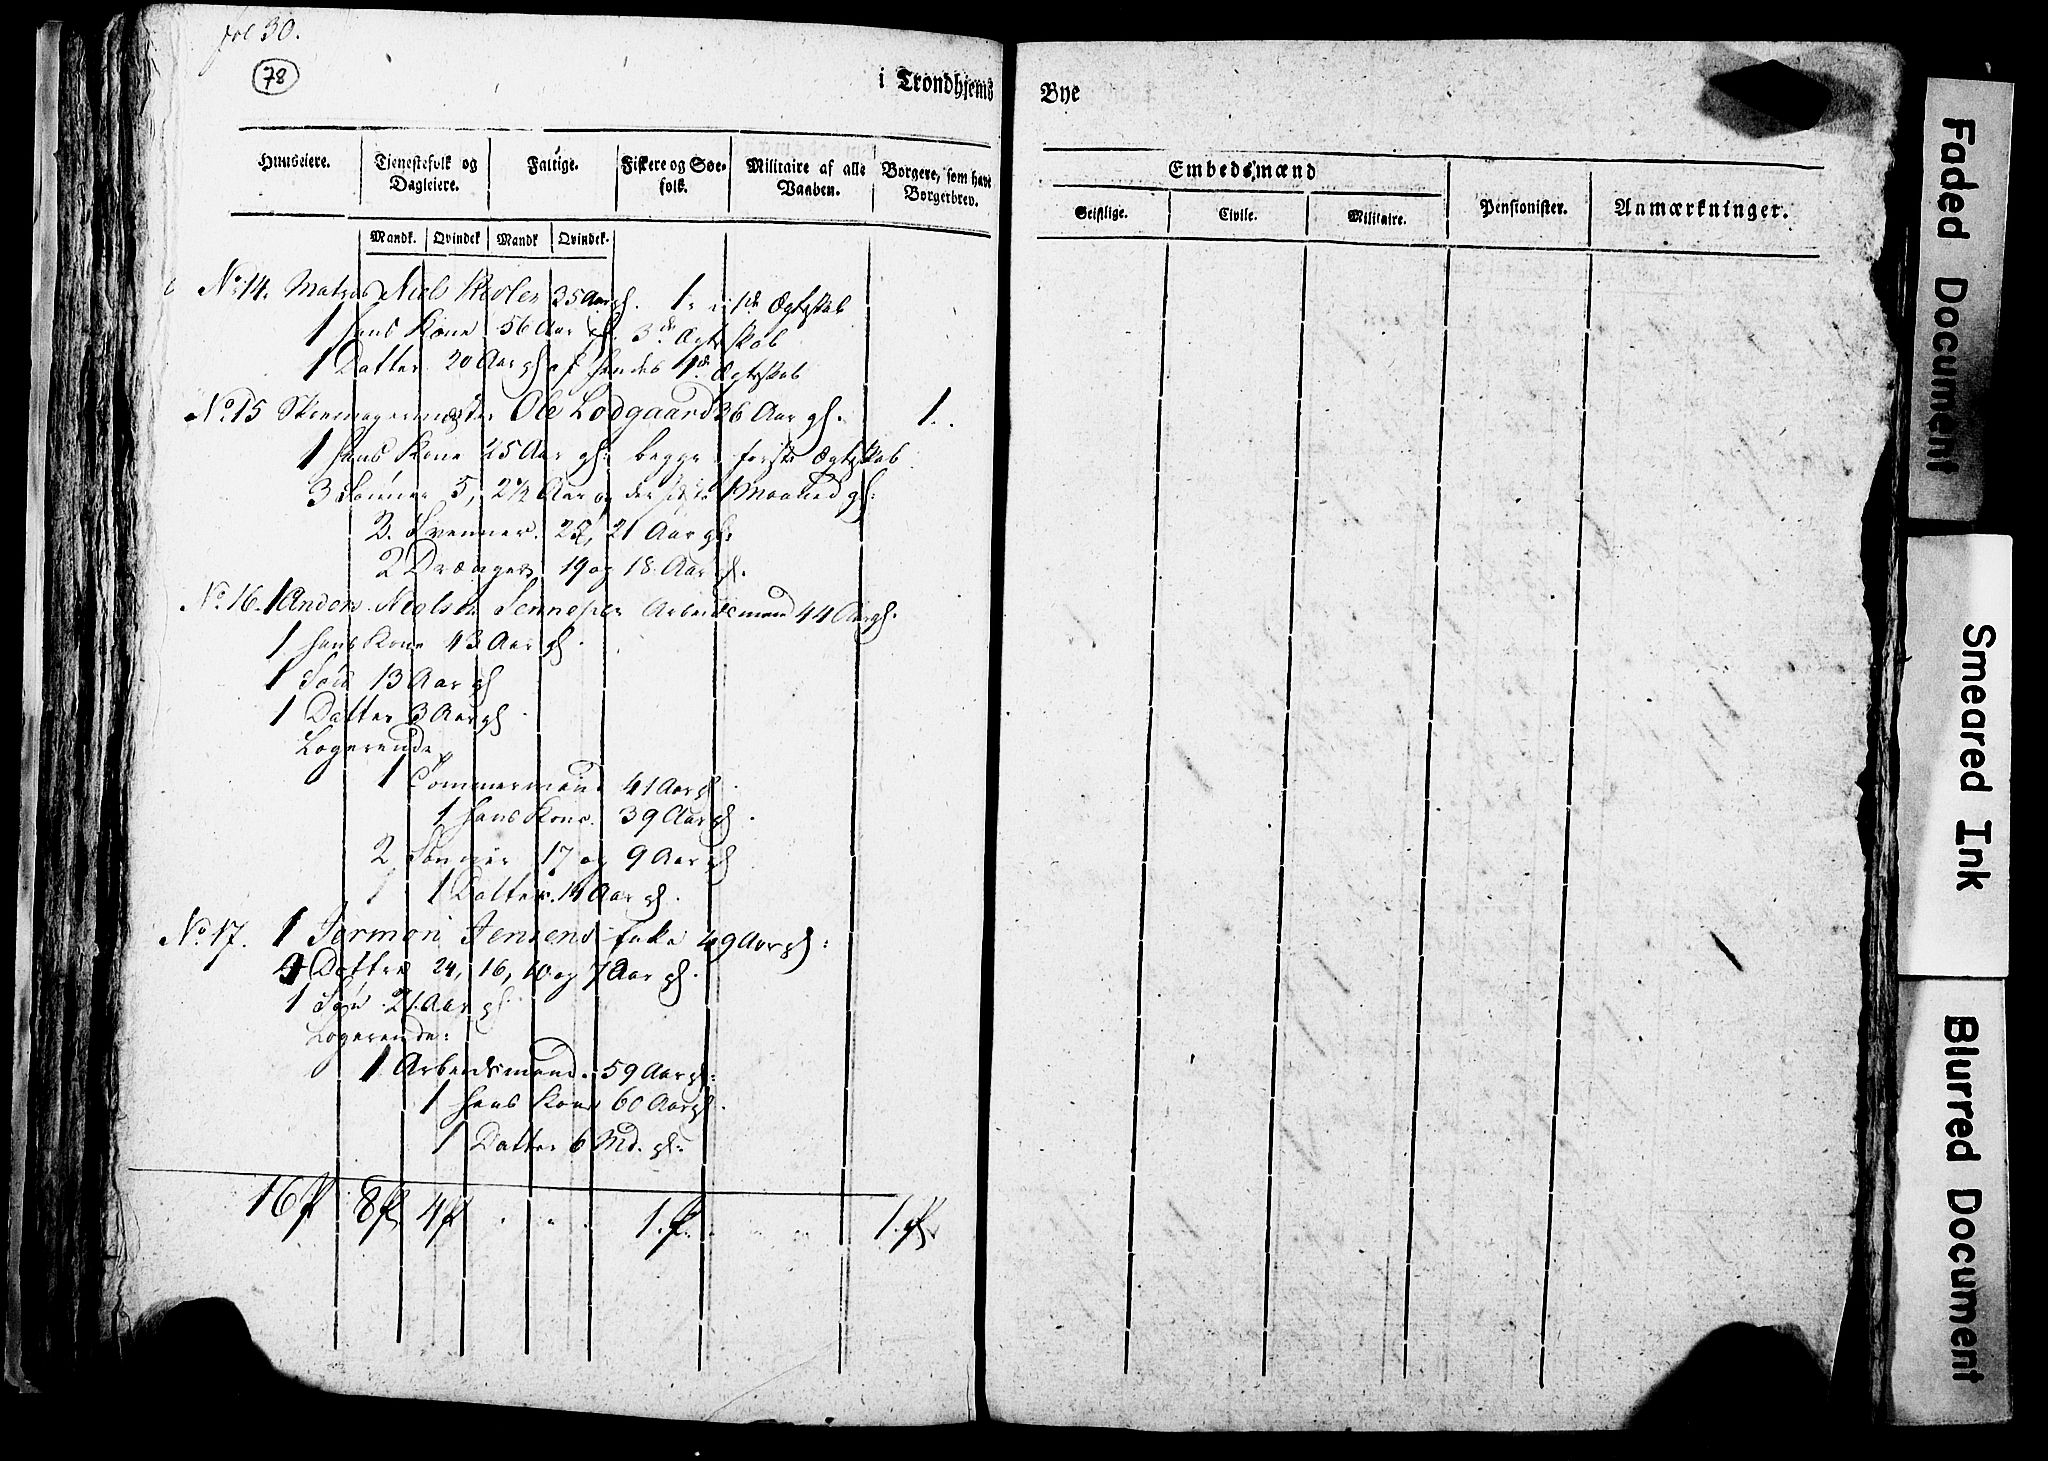 fol 30.
78
i Trondhjems Bye
Huuseiere. Tjenestefolk og Dagleiere. Fattige. Fiskere og Søefolk. Militaire af alle Vaaben. Borgere, som have Borgerbrev. Embedsmænd Pensionister. Anmærkninger.
Geistlige. Civile. Militaire.
Mandk. Qvindek Mandk Qvindek.
No 14. Matros Niels 35 Aar gl. 1. i 1de Ægteskab
1 hans Kone 56 Aar gl. 3de Ægteskab
1 Datter 20 Aar gl af hendes 1de Ægteskab
No 15 Skomagermester Ole Lodgaard 36 Aar gl. 1.
1 hans Kone 25 Aar gl: begge i første Ægteskab
3 Sønner 5, 2½ Aar og der sidste 1 Maaned gl:
2. Svenner. 23, 21 Aar gl:
2 Drænger 19 og 18 Aar gl.
No 16. 1 Anders Nielsen Arbeidsmand 44 Aar gl.
1 hans Kone 43 Aar gl.
1 Søn 13 Aar gl
1 Datter 3 Aar gl.
Logerende
1 Tømmermand 41 Aar gl.
1 hans Kone. 39 Aar gl.
2 Sønner 17 og 9 Aar gl
1 Datter. 14 Aar gl.
No 17. 1 Jensens Enke 49 Aar gl:
4 Døttre 24, 16, 10 og 7 Aar gl.
1 Søn 21 Aar gl.
Logerende:
1 Arbeidsmand. 59 Aar gl:
1 hans Kone 60 Aar gl.
1 Datter 6 Md. gl:
16 8 4 1. 1.
Faded Document
Smeared Ink
Blurred Document